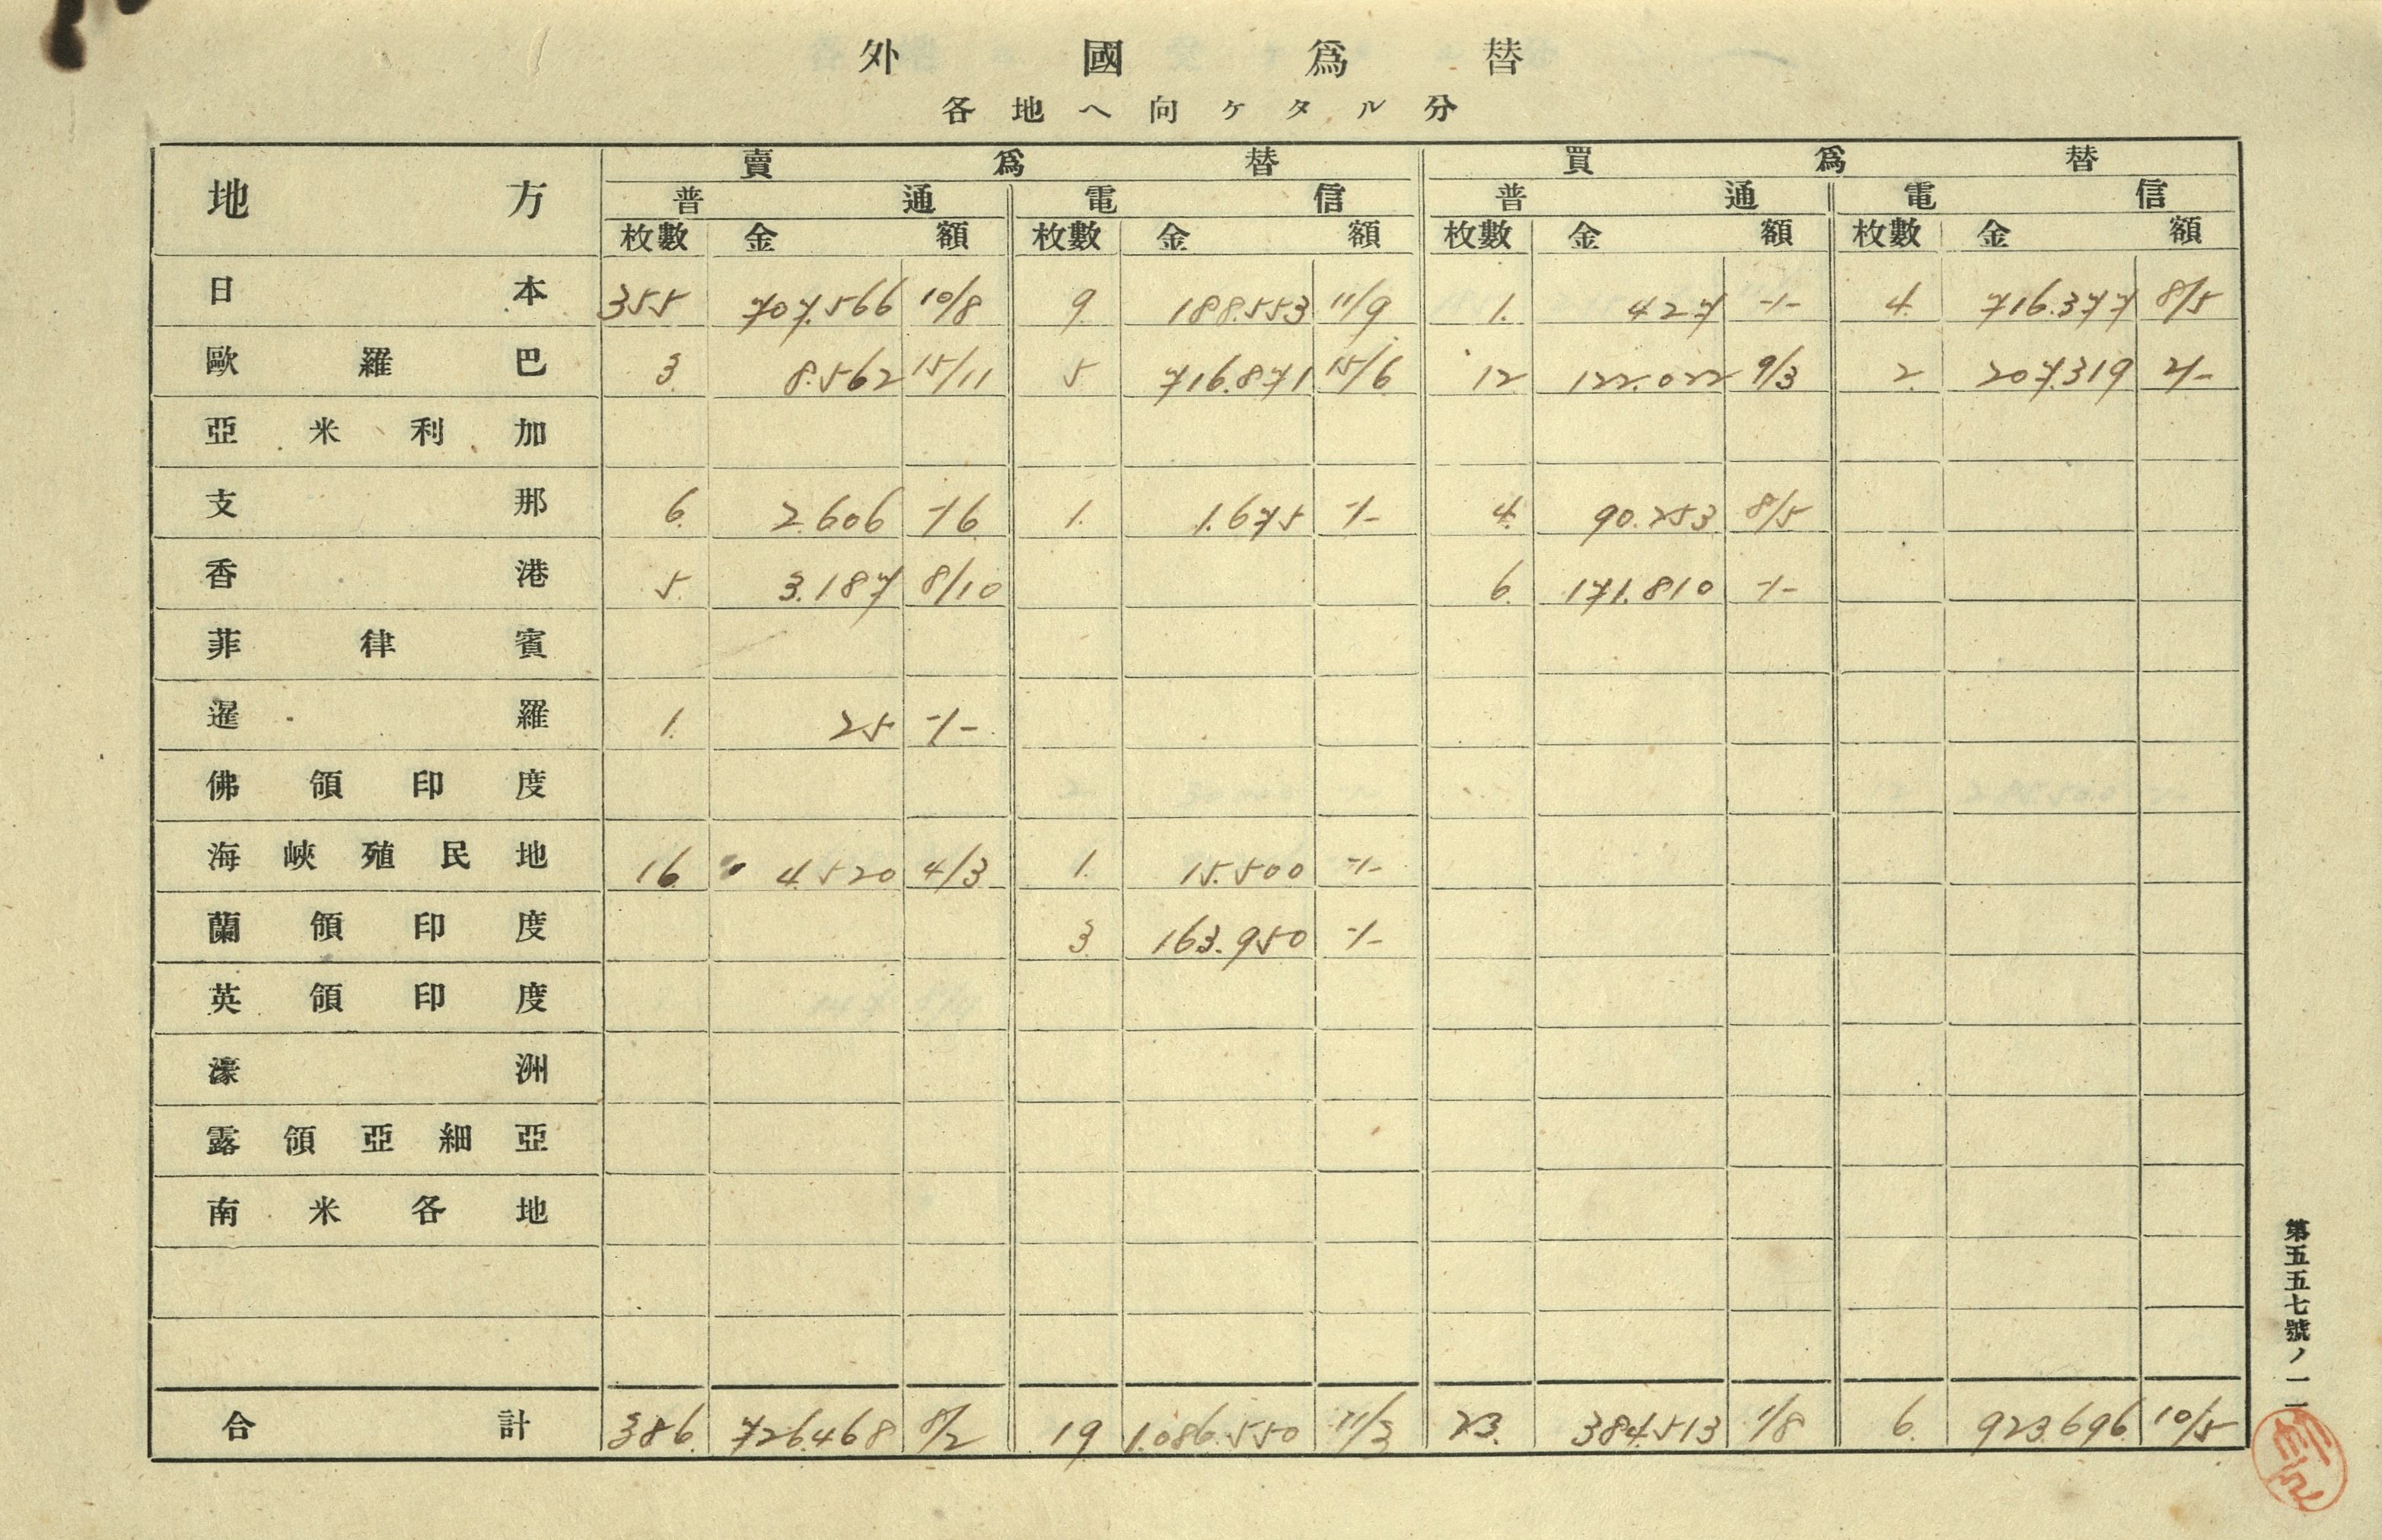 外國爲替
各地ヘ向ケタル分
地方 賣爲替 買爲替
普通 電信 普通 電信
枚數 金額 枚數 金額 枚數 金額 枚數 金額
日本 355 707.566 10/8 9. 188.553 11/9 1. 427 -/- 4. 716.377 8/5
歐羅巴 3. 8.562 15/11 5 716.871 15/6 12 122.022 9/3 2. 207.319 2/-
亞米利加
支那 6. 2.606 -/6 1. 1.675 -/- 4. 90.253 8/5
香港 5. 3.187 8/10 6. 171.810 -/-
菲律賓
暹羅 1. 25 -/-
佛領印度
海峽殖民地 16. 4.520 4/3 1. 15.500 -/-
蘭領印度 3. 163.950 -/-
英領印度
濠洲
露領亞細亞
南米各地
合計 386. 726.468 8/2 19 1.086.550 11/3 23. 384.513 1/8 6. 923.696 10/5
第五五七號ノ一一